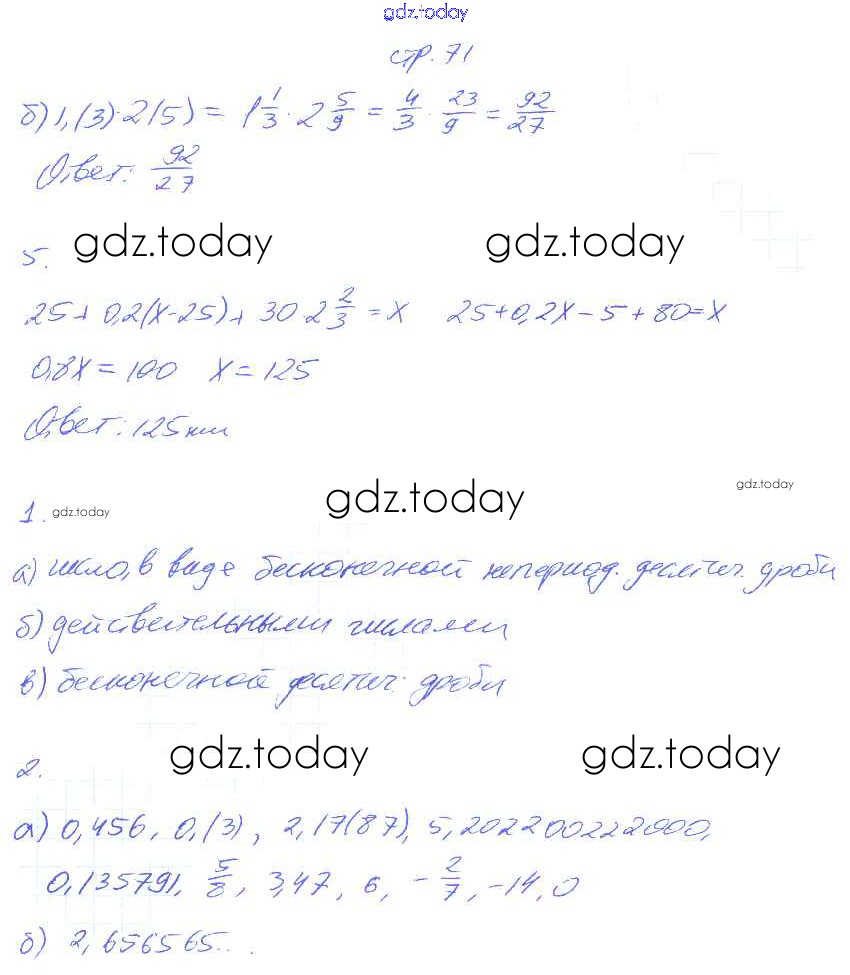 gdz.today
стр. 71
б) 1,(3)·2(5) = 1 1/3 · 2 5/9 = 4/3 · 23/9 = 92/27
Ответ: 92/27
gdz.today gdz.today
5.
25+ 0,2(x-25)+ 30·2 2/3 = x 25+0,2x-5+80=x
0,8x = 100 x = 125
Ответ: 125 км
gdz.today gdz.today
1. gdz.today
а) число, в виде бесконечной непериод. десятич. дроби
б) действительными числами
в) бесконечной десятич. дроби
gdz.today gdz.today
2.
а) 0,456, 0,(3), 2,17(87), 5,202200222000,
0,135791, 5/8, 3,47, 6, -2/7, -14, 0
б) 2,656565...